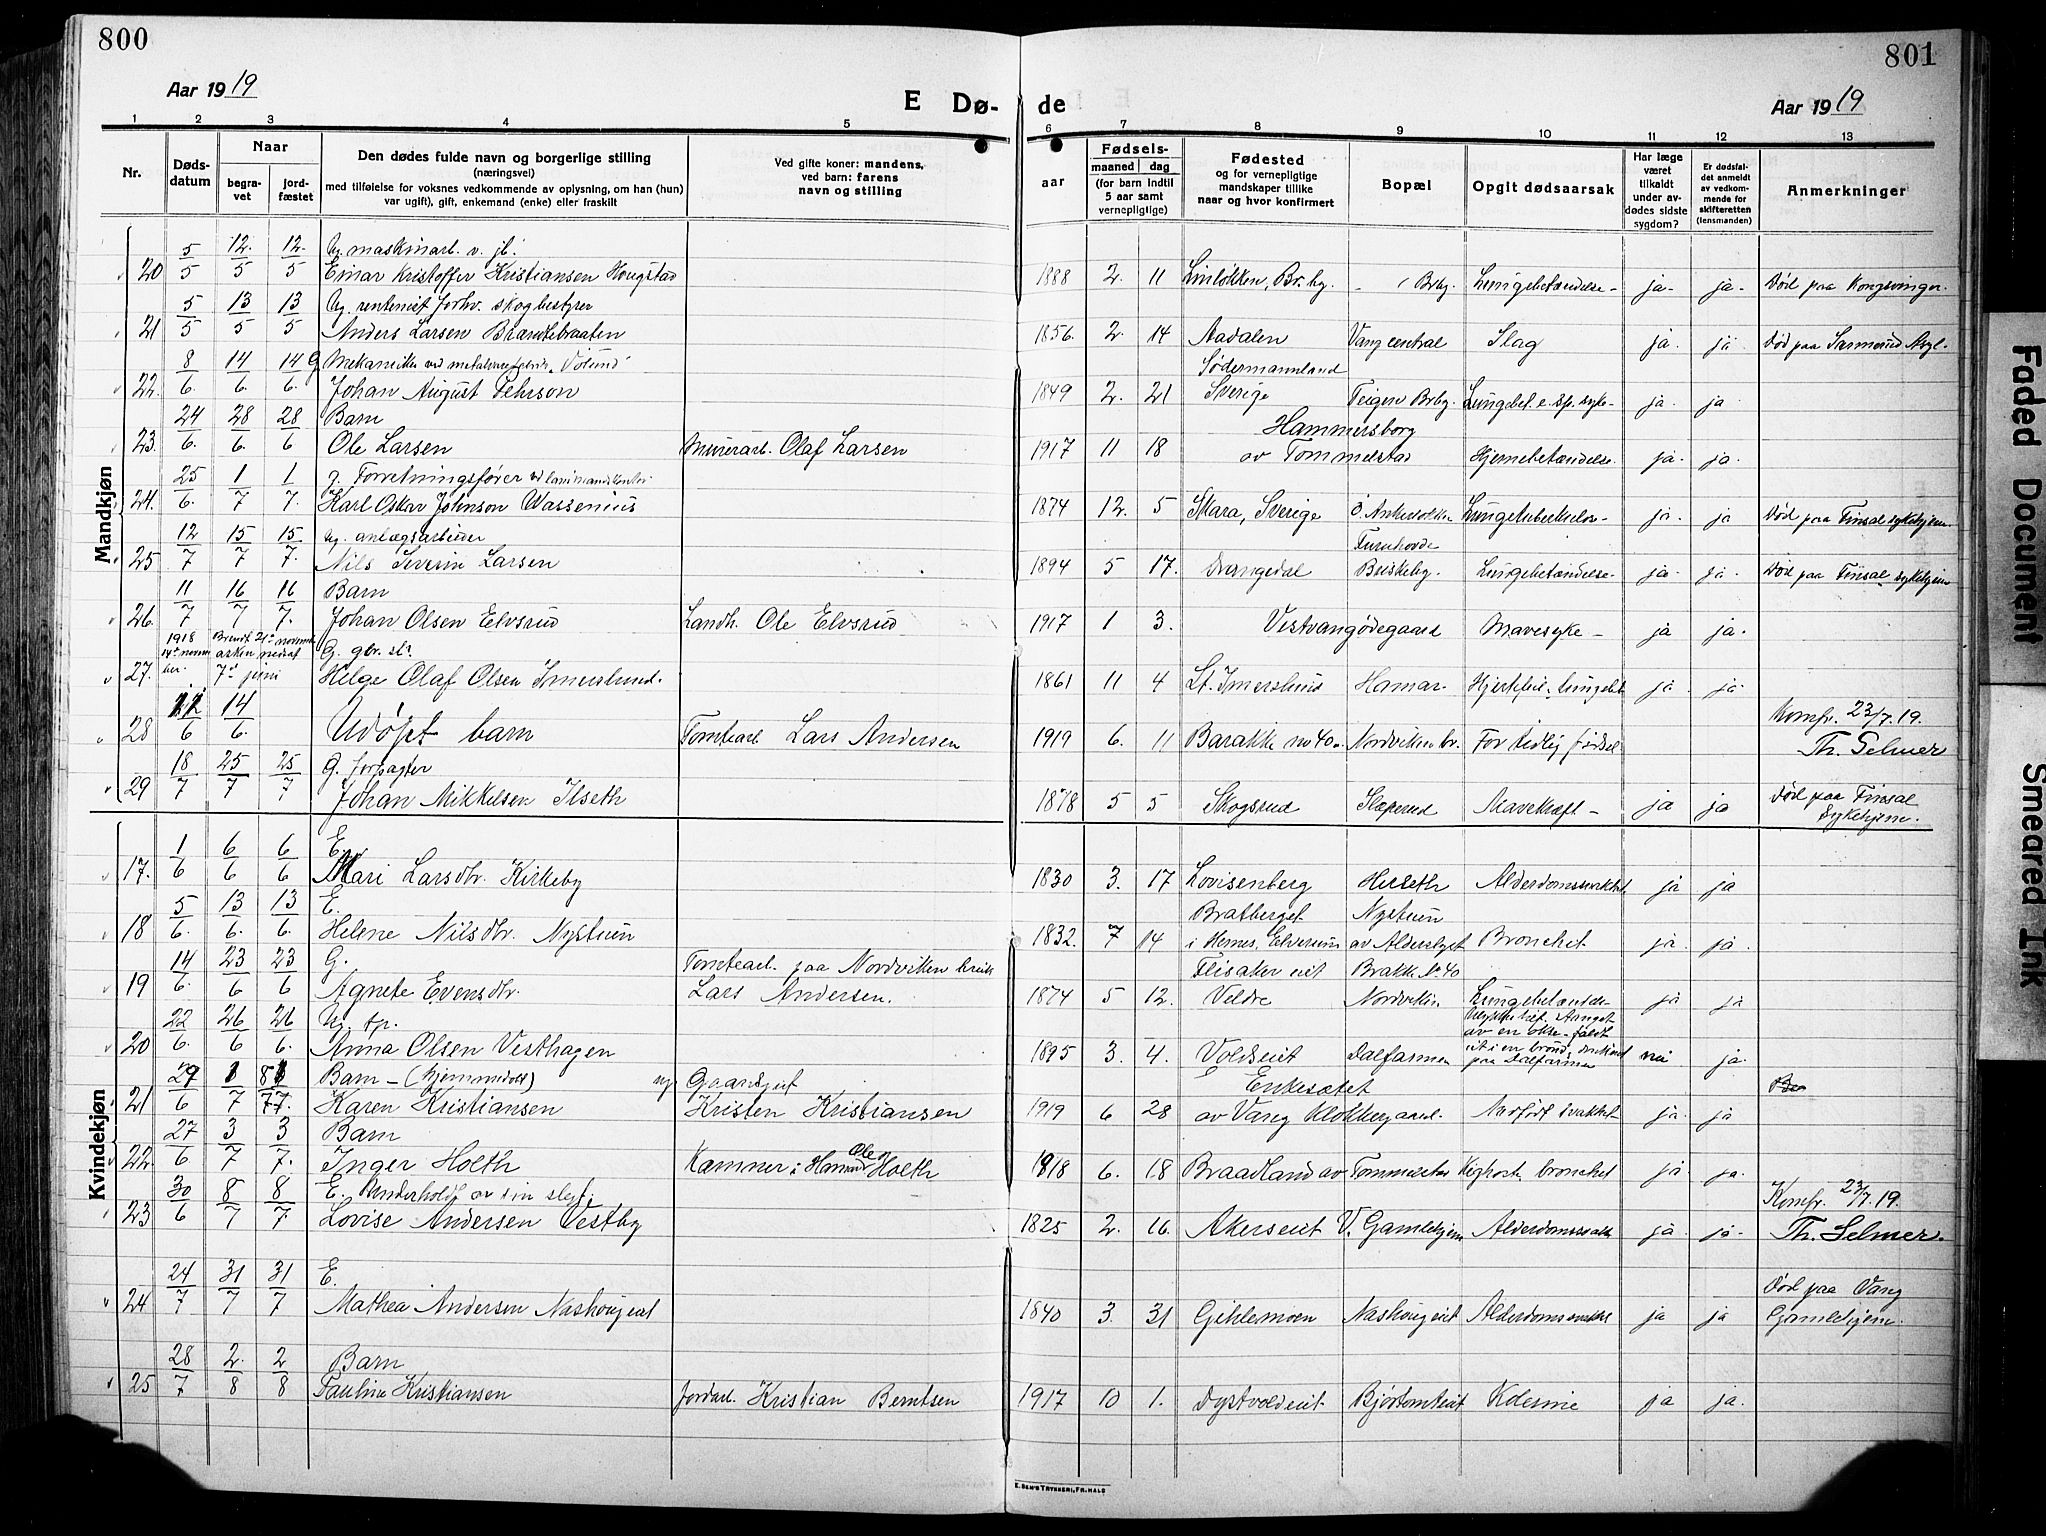 800
801
Aar 1919
E Dø-
de
Aar 1919
1 2 3 4 5 6 7 8 9 10 11 12 13
Nr.
Døds-datum
Naar
begra-vet
jord-fæstet
Den dødes fulde navn og borgerlige stilling
(næringsvei)
med tilføielse for voksnes vedkommende av oplysning, om han (hun)
var ugift), gift, enkemand (enke) eller fraskilt
Ved gifte koner: mandens,
ved barn: farens
navn og stilling
aar
Fødsels-
maaned dag
(for barn indtil
5 aar samt
vernepligtige)
Fødested
og for vernepligtige
mandskaper tillike
naar og hvor konfirmert
Bopæl
Opgit dødsaarsak
Har læge
været
tilkaldt
under av-
dødes sidste
sygdom?
Er dødsfal-
det anmeldt
av vedkom-
mende for
skifteretten
(lensmanden)
Anmerkninger
Mandkjøn
5 12. 12. Ug. maskinarb. v. jb.
20 5 5 5 Einar Kristoffer Kristiansen Hougstad 1888 2. 11 Linløkken, Br.by. Brby. Lungebetændelse ja ja Død paa Kongsvinger.
5 13 13 Ug. rentenist forhv. skogbestyrer
21 5 5 5 Anders Larsen Brændebraaten 1856. 2. 14 Aadalen Vang central Slag ja ja Død paa Sanmerud
8 14 14 G Mekaniker ved Vølund
Södermannland
22. 6 6. 6. Johan August Pehrson 1849 2. 21 Sverige Teigen Brby. ja ja
24 28 28 Barn
Hammersborg
23. 6. 6 6 Ole Larsen Murerarb. Olaf Larsen 1917 11 18 av Tommelstad Hjernebetændelse ja ja
25 1 1 g. Forretningsfører
24. 6. 7 7. Karl Oskar Johnson Wassenius 1874 12. 5 Skara, Sverige Ö. Ankerløkken Lungetuberkulose ja ja Død paa Finsal sykehjem
12 15 15. Ug. anlægsarbeider
Furuhovde
25 7 7 7. Nils Severin Larsen 1894 5 17. Drangedal Briskeby. Lungebetændelse ja ja Død paa Finsal sykehjem
11 16 16 Barn
26. 7 7 7. Johan Olsen Elvsrud Landh. Ole Elvsrud 1917 1 3. Vestvangødegaard Mavesyke ja ja
1918 Brendt 21de novem.
14de novem asken nedsat G. gbr. sl.
27. ber. 7de juni Helge Olaf Olsen Imerslund. 1861 11 4 Lt. Imerslund Hamar Hjertefeil, lungebet ja ja
11 14
Komfr. 23/7.19.
28 6 6. Udøpt barn Tomtearb. Lars Andersen 1919 6. 11 Barakke no 40. Nordviken br. For tidlig fødsel Th. Selmer
18 25 25 G. forpagter
29 7 7 7 Johan Mikkelsen Ilseth 1878 5 5 Skogsrud Slæperud Mavekræft ja ja Død paa Finsal
Sykehjem.
Kvindekjøn
1 6 6 E.
17. 6 6 6 Mari Larsdtr. Kirkeby 1830 3. 17 Lovisenberg Herseth Alderdomssvakhet ja ja
5 13 13 E.
Bratberget Nystuen
18 6. 6. 6. Helene Nilsdtr. Nystuen 1832. 7 14 i Hernes, Elverum av Alderslyst Bronchit ja ja
14 23 23 G. Tomtearb. paa Nordviken bruk
Flisaker eiet Brakk No 40
19 6. 6 6 Agnete Evensdtr. Lars Andersen. 1874 5 12. Veldre Nordviken Lungebetændelse ja ja
22 26 26 Ug. tp.
Ulykkestilf. Stanget
av en okse - faldt
ut i en brønd, druknet
paa Dalfarmen
20 6. 6 6. Anna Olsen Vesthagen 1895 3. 4. Voldseiet Dalfarmen nei ja
29 1 8 Barn - (hjemmedøpt) ug. Gaardsgut
Enkesætet
21 6 7 7. Karen Kristiansen Kristen Kristiansen 1919 6 28 av Vang Klokkergaard. Medfødt svakhet ja ja
27 3 3 Barn
22. 6 7 7. Inger Holth Kæmner i Hamar Ole Holth 1918 6. 18 Braadland av Tommelstad Kighost, bronchit ja ja
30 8 8 E. Underholdt av sin slegt.
Komfr. 23/7.19.
23 6 7 7. Lovise Andersen Vestby 1825 2. 16. Akerseiet V. Gamlehjem Alderdomssvakh ja ja Th. Selmer.
24 31 31 E.
Død paa Vang
24 7 7 7 Mathea Andersen Nashougeiet 1840 3. 31 Gihlemoen Nashougeiet Alderdomssvakhet ja ja Gamlehjem.
28 2. 2 Barn
25 7 8 8 Pauline Kristiansen Jordarb. Kristian Berntsen 1917 10 1. Dystvoldeiet Bjørtomteiet Kolerine ja ja
E. SEM'S TRYKKERI, FR.HALD
Faded Document
Smeared Ink